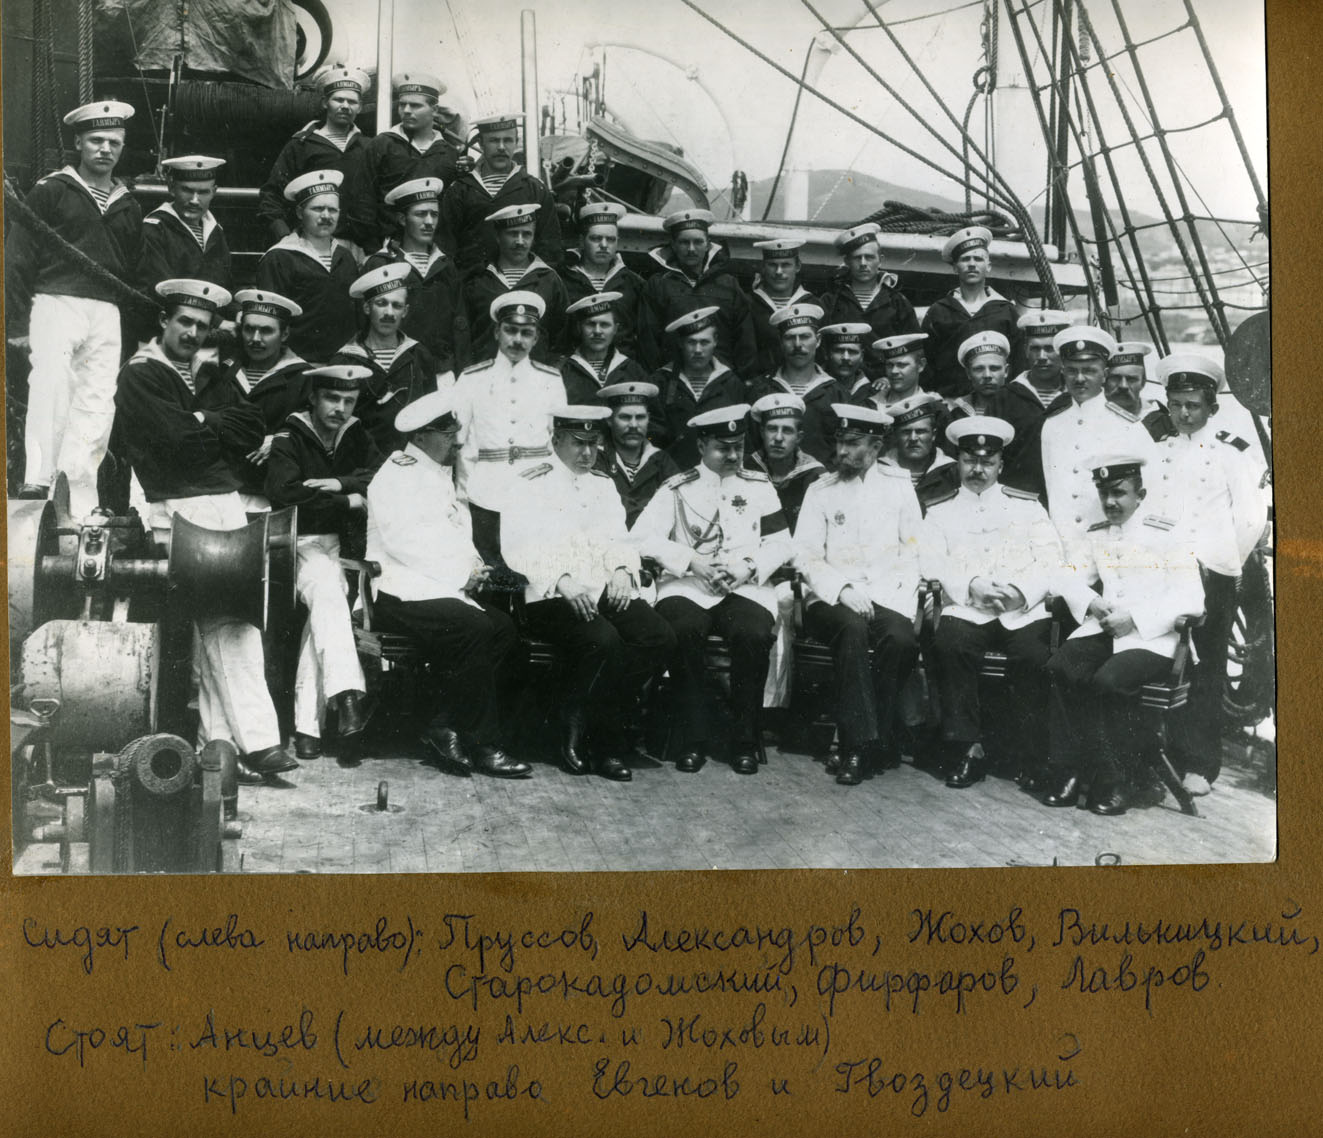 ТАЙМЫРЪ
Сидят (слева направо): Пруссов, Александров, Жохов, Вилькицкий,
Старокадомский, Фирфаров, Лавров.
Стоят: Анцев (между Алекс. и Жоховым)
крайние направо Евгенов и Гвоздецкий